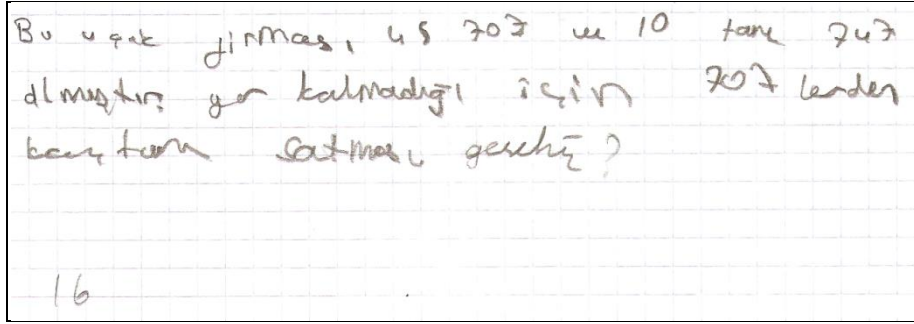 Bu uçak firması, 45 707 ve 10 tane 747
almıştır yer kalmadığı için 707 lerden
kaç tane satması gerekir?
16